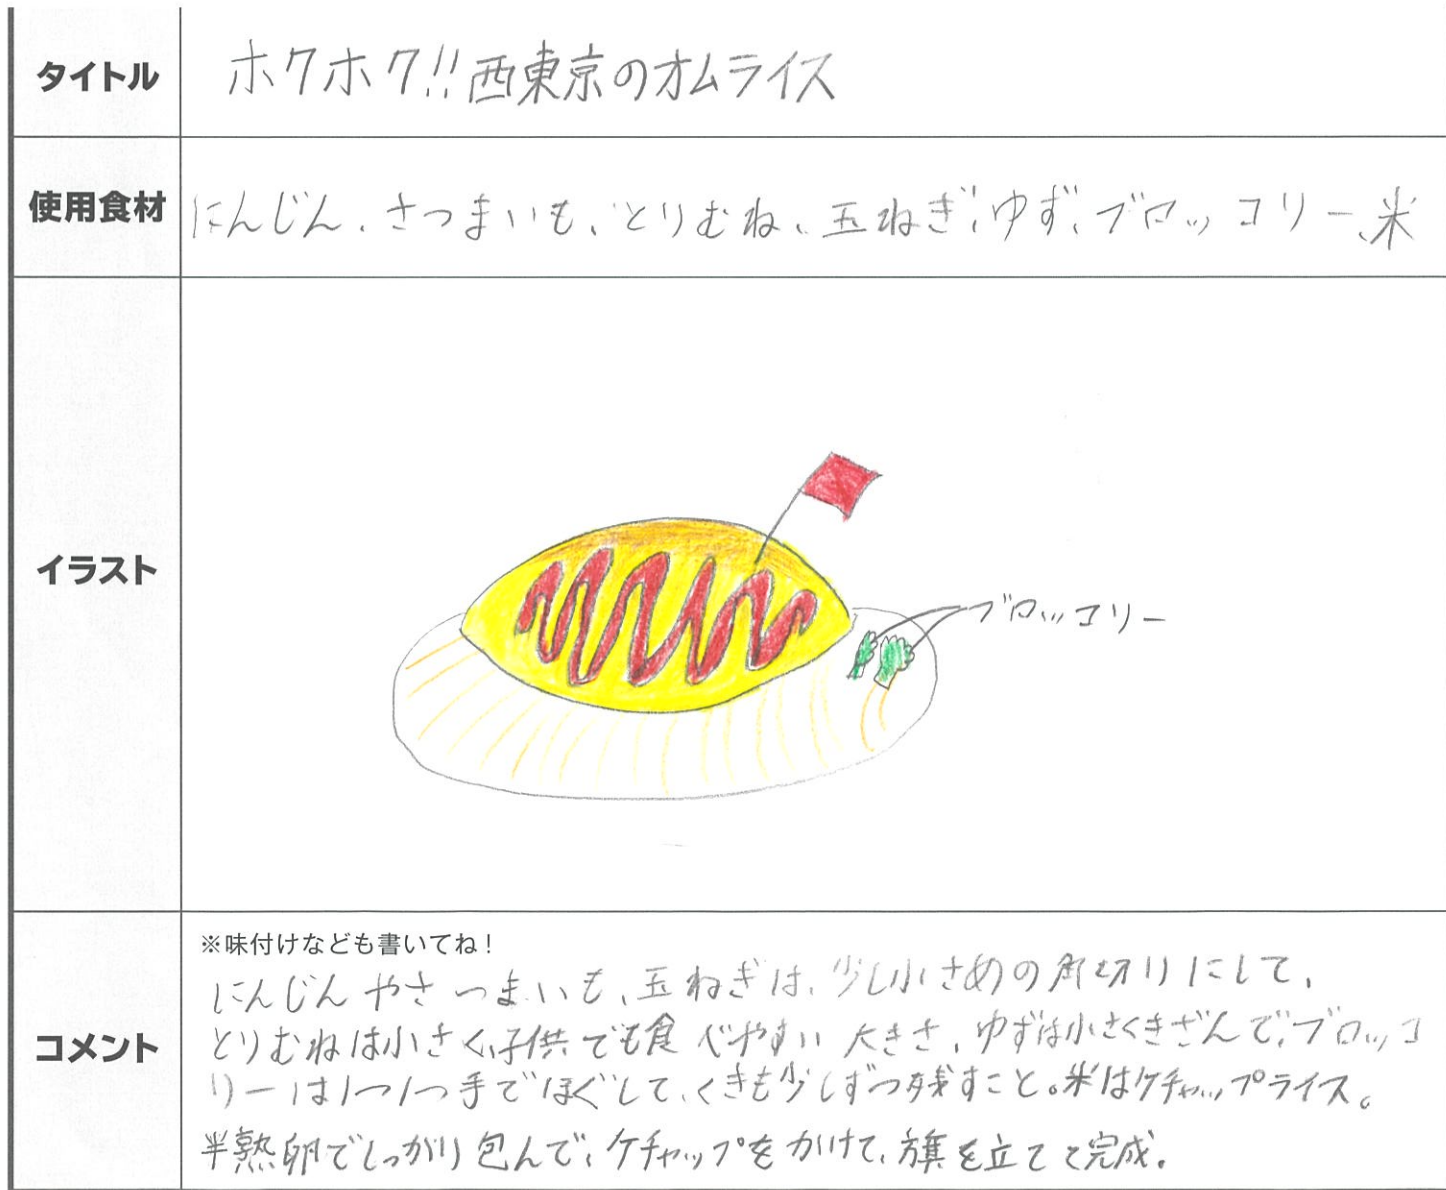 タイトル
ホクホク!!西東京のオムライス
使用食材
にんじん、さつまいも、とりむね、玉ねぎ、ゆず、ブロッコリー、米
イラスト
ブロッコリー
コメント
※味付けなども書いてね！
にんじんやさつまいも、玉ねぎは、少し小さめの角切りにして、
とりむねは小さく、子供でも食べやすい大きさ、ゆずは小さくきざんで、ブロッコ
リーは1つ1つ手でほぐして、くきも少しずつ残すこと。米はケチャップライス。
半熟卵でしっかり包んで、ケチャップをかけて、旗を立てて完成。